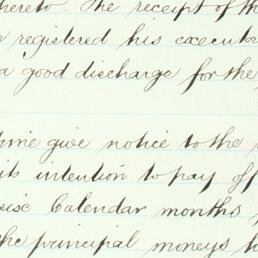 hereto. The receipt of th
registered his executr
a good discharge for the
time give notice to the
its intention to pay off
Calendar months
the principal moneys